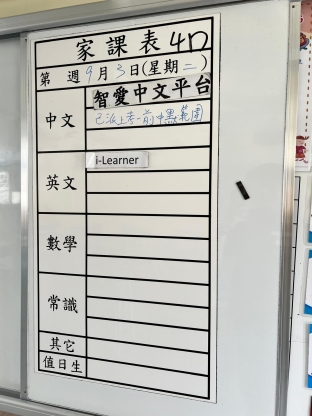 家課表4D
第 週9月3日(星期二)
中文
智愛中文平台
已派上考一前中默範圍
英文
i-Learner
數學
常識
其它
值日生